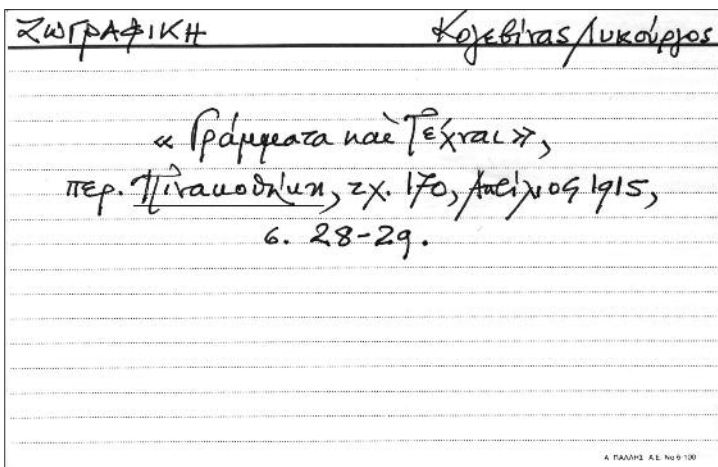 ΖΩΓΡΑΦΙΚΗ Κογεβίνας Λυκούργος
« Γράμματα καὶ Τέχναι »,
περ. Πινακοθήκη, τχ. 170, Απρίλιος 1915,
σ. 28-29.
Α. ΠΑΛΛΗΣ Α.Ε. Νο 6-100